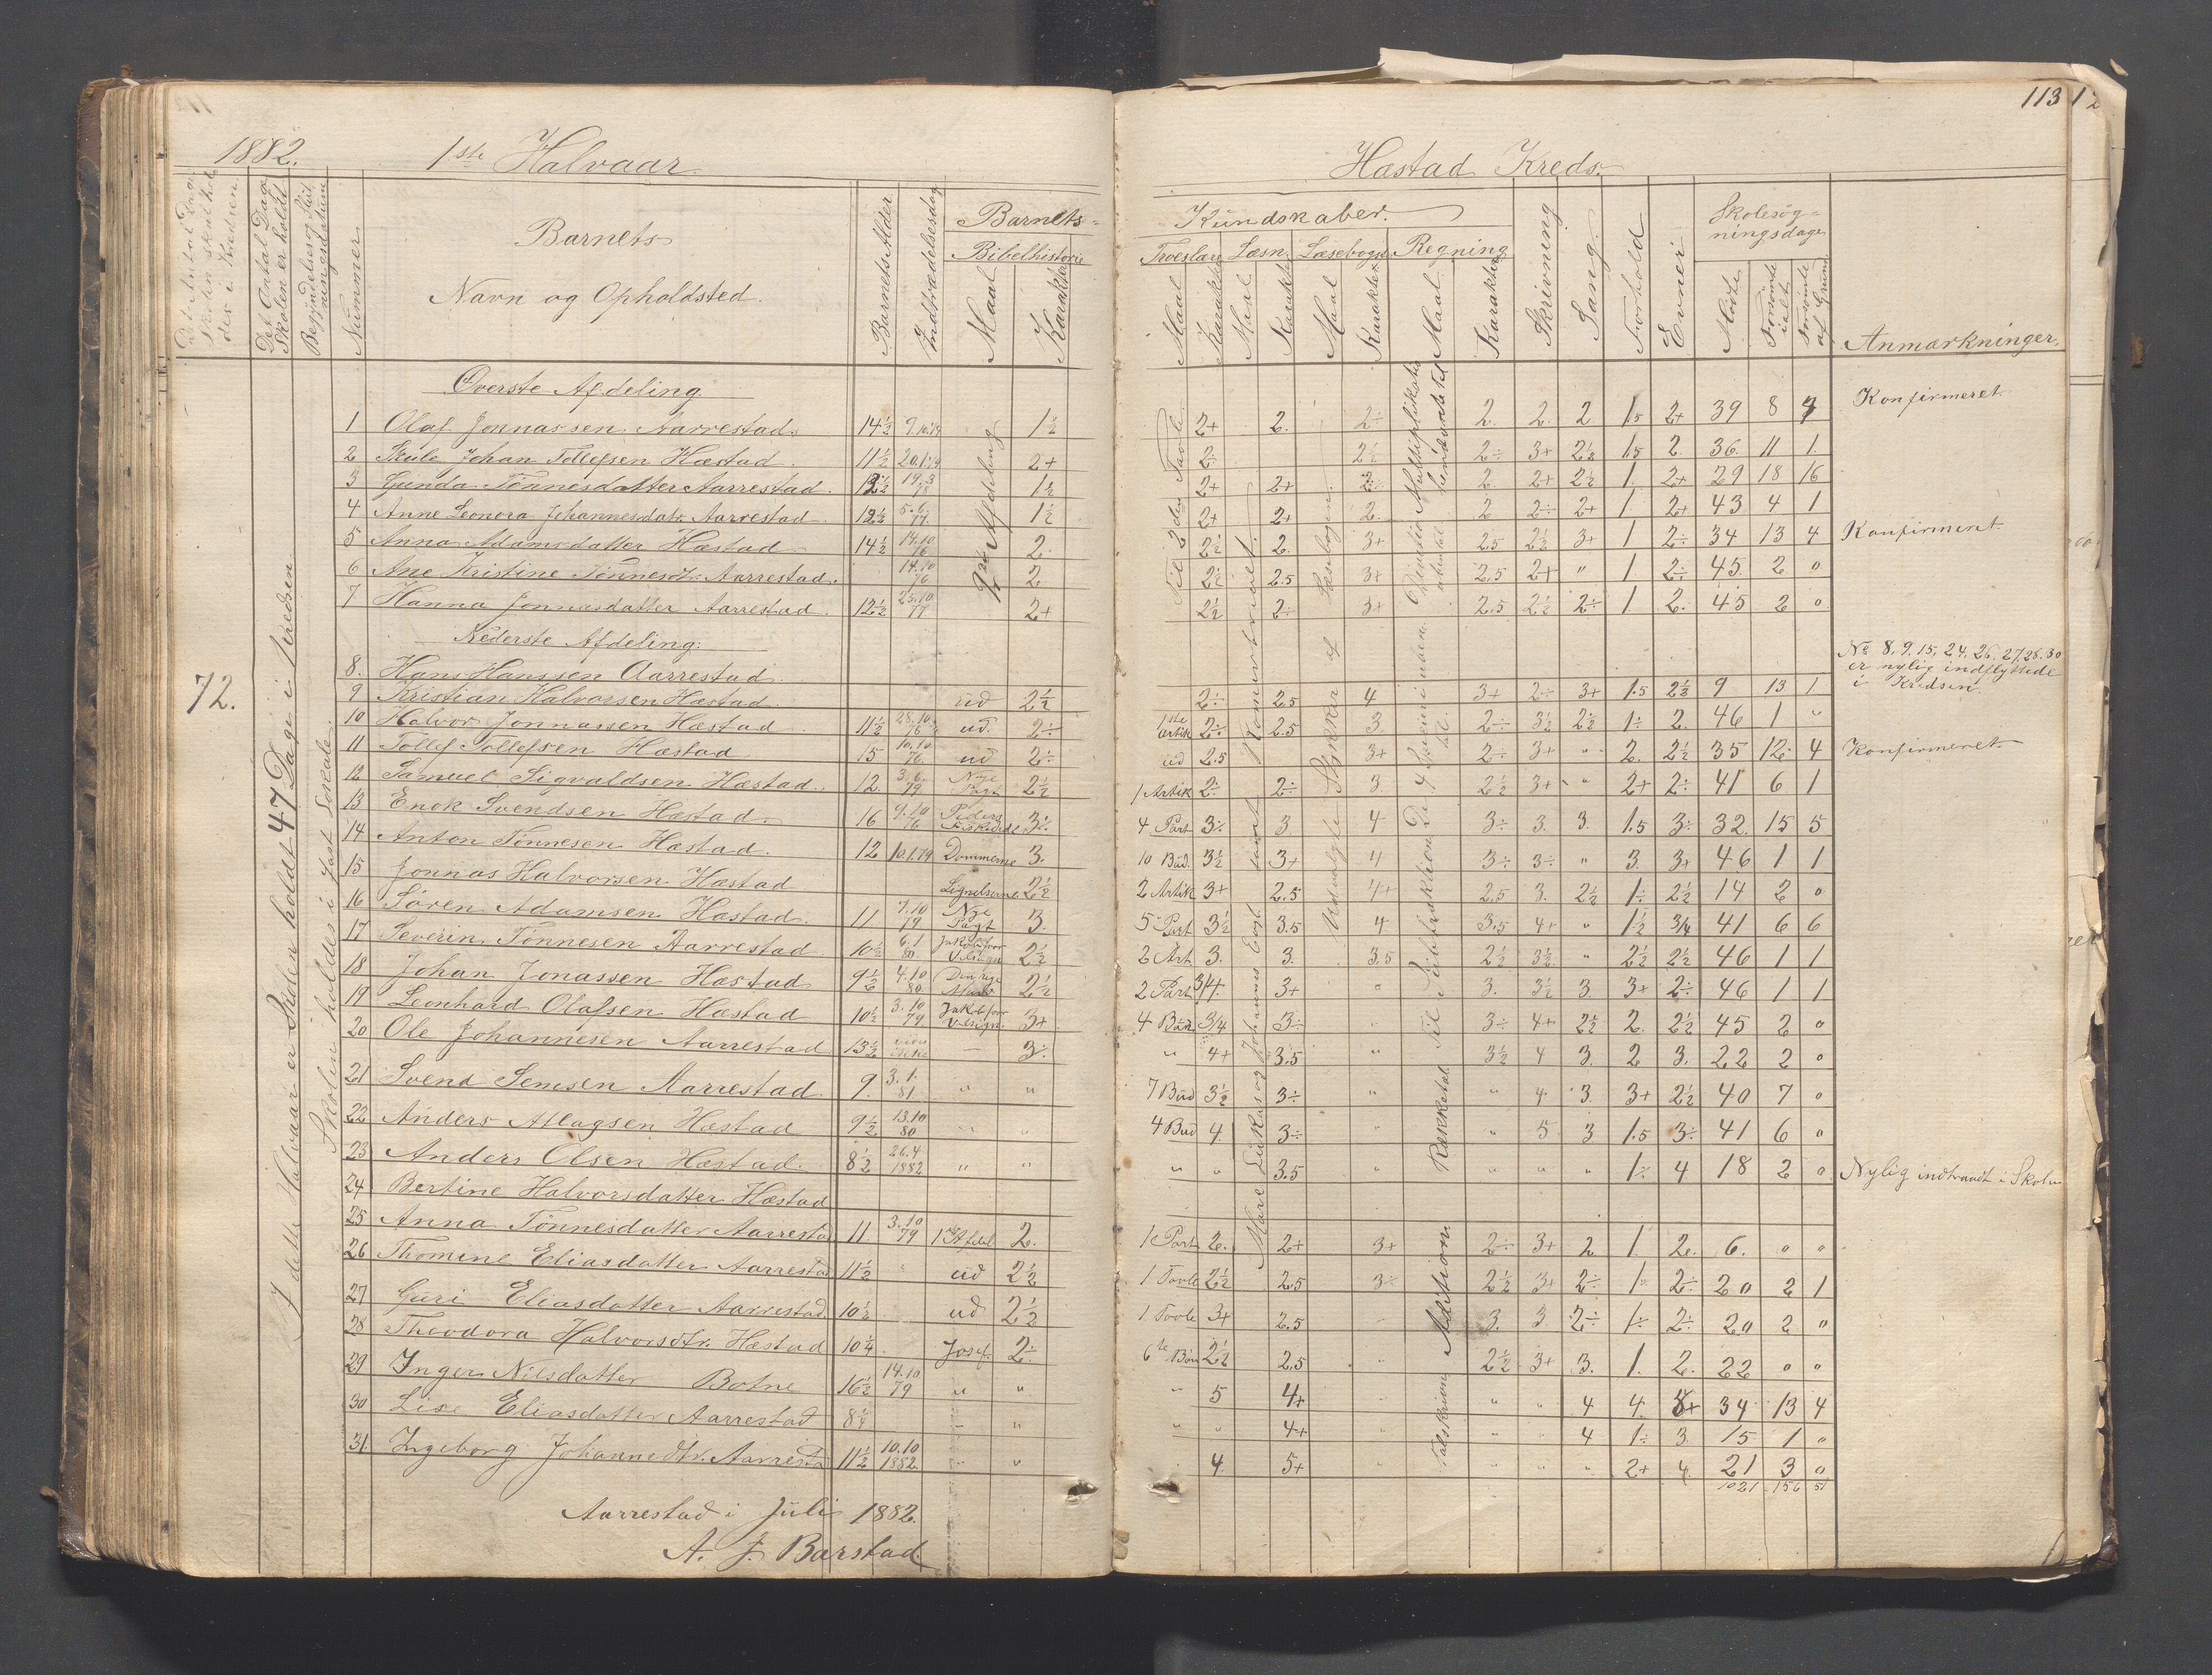 113
1882.
1ste Halvaar.
Hæstad Kreds.
Det Antal Dage Skolen skal holdes i Kredsen
Det Antal Dage Skolen er holdt
Begyndelses og Slutningsdatum
Nummer
Barnets
Navn og Opholdsted.
Barnets Alder
Indtrædelsesdag
Barnets
Bibelhistorie
Maal
Karakter
Kundskaber.
Troeslære
Læsn.
Læsebogen
Regning
Maal
Karakter
Maal
Karakter
Maal
Karakter
Maal
Karakter
Skrivning
Sang.
Forhold
Evner
Skolesøgningsdage
Mødte
Forsømte ialt
Forsømte af Grund
Anmærkninger.
72.
I dette Halvaar er Skolen holdt 47 Dage i Kredsen.
Skolen holdes i fast Lokale.
Øverste Afdeling
1 Olaf Jonnassen Aarrestad. 14½ 1½ 2+ 2. 2÷ 2. 2. 2 1.5 2+ 39 8 7 Konfirmeret
2 Skule Johan Tollefsen Hæstad. 11½ 2+ 2÷ 2½ 2÷ 3+ 2½ 1.5 2. 36. 11 1.
3 Gunda Tønnesdatter Aarrestad. 19.3 78 1½ 2+ 2+ 2. 2+ 2½ 1. 2+ 29 18 16
4 Anne Leonora Johannesdatr. Aarrestad 12½ 1½ 2+ 2+ 2. 2 2÷ 2+ 1 2+ 43 4 1
5 Anna Adamsdatter Hæstad 14½ 14.10 76 2. 2½ 2. 3+ 2.5 2½ 3+ 1 2÷ 34 13 4 Konfirmeret.
6 Ane Kristine Tønnesdtr. Aarrestad. 14.10 76 2 2½ 2.5 3+ 2.5 2+ " 1 2÷ 45. 2 0
7 Hanna Jonnasdatter Aarrestad. 12½ 23.10 77. 2+ 2½ 2÷ 3+ 2.5 2½ 2÷ 1. 2. 45 2 0
2den Afdeling
Til 2den Tavle
Nederste Afdeling:
No 8. 9. 15, 24. 26. 27. 28. 30
er nylig indflyttede
i Kredsen.
8. Hans Hanssen Aarrestad.
9 Kristian Halvorsen Hæstad. ud 2½ 2÷ 2.5 4 3+ 2÷ 3+ 1.5 2½ 9 13 1
10 Halvor Jonnassen Hæstad 11½ 28.10 76 ud. 2÷ 1ste Artik 2÷ 2.5 3. 2÷ 3½ 2½ 1÷ 2. 46 1 "
11 Tollef Tollefsen Hæstad 15 10.10 76. ud 2÷ ud 2.5 3+ 2÷ 3+ " 2. 2½ 35 12. 4 Konfirmeret.
12 Samuel Sigvaldsen Hæstad. 12. 3.6. 79 Nye Part 2½ 1 Artik 2÷ 2÷ 3. 2½ 3+ " 2+ 2÷ 41 6 1
13 Enok Svendsen Hæstad. 16 9.10 76 Peders 3÷ 4 Part 3÷ 3. 4 3÷ 3. 3. 1.5 3÷ 32. 15 5
14 Anton Tønnesen Hæstad. 12 10.1.79 Dommerne 3. 10 Bud. 3½ 3+ 4 3÷ 3÷ " 3. 3+ 46 1 1
15 Jonnas Halvorsen Hæstad Lignelserne 2½ 2 Artik 3+ 2.5 4+ 2.5 3. 2½ 1÷ 2½ 14 2 0
16 Søren Adamsen Hæstad. 11 7.10 79 Nye Pagt 3. 5 Part 3½ 3.5 4 3.5 4+ " 1½ 3/4 41 6 6
17 Severin Tønnesen Aarrestad. 10½ 6.1 80. Jakob for Velsign 2½ 2 Art 3. 3. 3.5 2½ 3½ " 2½ 2½ 46 1 1
18 Johan Jonassen Hæstad 9½ 4.10 80. 2½ 2 Part 3/4. 3+ " 3. 3½ 3. 3+ 2÷ 46 1 1
19 Leonhard Olafsen Hæstad 10½ 3.10 79 Jakob for Velsign. 3+ 4 Bøn 3/4 3÷ 3÷ 4+ 2½ 2. 2½ 45 2 0
20 Ole Johannesen Aarrestad 13½ 3÷ " 4+ 3.5 " 3½ 4 3. 2 3. 22 2 0
21 Svend Semsen Aarrestad 9. 3.1. 81 " " 7 Bud 3½ 3÷ " 4. 3. 3+ 2½ 40 7 0
22 Anders Atlagsen Hæstad 9½ 13.10 80 " " 4 Bud 4. 3÷ " " 5 3 1.5 3÷ 41 6 0
23 Anders Olsen Hæstad. 8½ 26.4 1882 " " " " 3.5 " " " " 1÷ 4 18 2 0 Nylig indtraadt i Skolen
24 Bertine Halvorsdatter Hæstad
25 Anna Tønnesdatter Aarrestad 11. 3.10 79 1 Afdel 2. 1 Part 2. 2+ 3+ 2÷ 3+ 2 1. 2. 6. 0 0
26 Thomine Eliasdatter Aarrestad 11½ ud 2½ 1 Tavle 2½ 2.5 3÷ 2½ 3+ 2÷ 1÷ 2÷ 20 2 1
27 Guri Eliasdatter Aarrestad 10½ ud 2½ 1 Tavle 3+ 2.5 3. 3. 2÷ 1÷ 2÷ 20 2 0
28 Theodora Halvorsdtr. Hæstad 10¼ Josef. 2÷ 6te Bøn 2½ 2.5 2½ 3+ 3. 1. 2. 22 0 0
29 Inger Nilsdatter Botne 16½ 14.10. 79 " " " 5 4+ " " 4 4. 34 13 4
30 Lise Eliasdatter Aarrestad 8¼ " " " 4+ " " 4 1÷ 3. 15 1 0
31 Ingeborg Johannedtr. Aarrestad 11½ 10.10 1882. " " 4. 5+ " " " 2+ 4. 21 3 0
1021 156 51
Markus Lukas og Johannes Evgl. samt
Udvalgte Stykker af Læsebogen.
De 4 Specier i uben. tal.
Til Subtraktion
Rækketal
Addition
Talskrivn
Aarrestad i Juli 1882.
A. J. Barstad